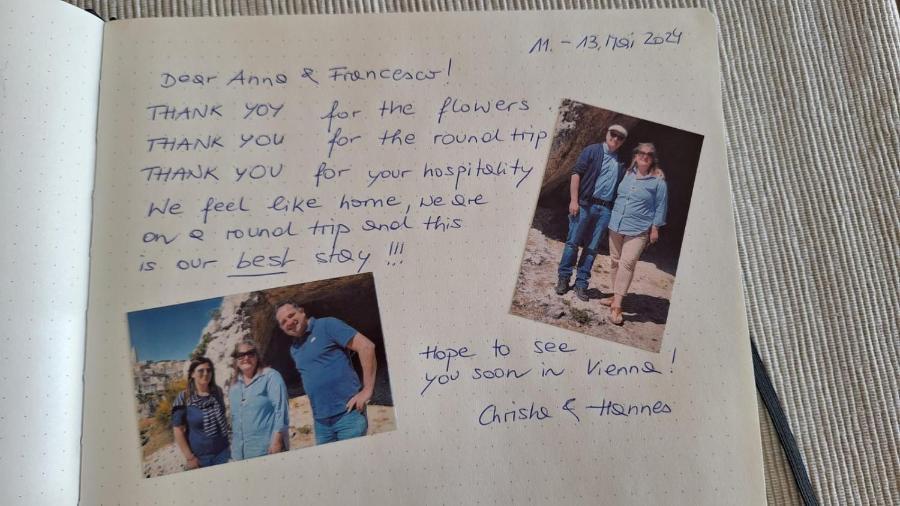 11. - 13. Mai 2024
Dear Anna & Francesco!
THANK YOY for the flowers.
THANK YOU for the round trip
THANK YOU for your hospitality
We feel like home, we are
on a round trip and this
is our best stay !!!
Hope to see
you soon in Vienna!
Christa & Hannes